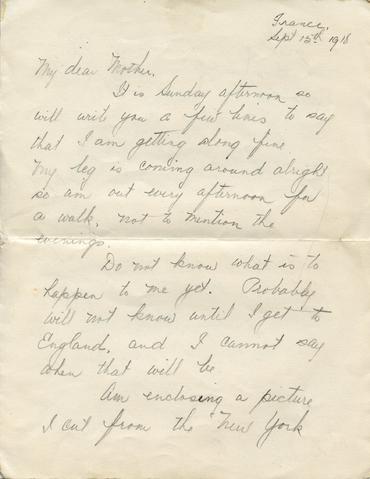 France,
Sept 15th 1918
My dear Mother,
It is Sunday afternoon so
will write you a few lines to say
that I am getting along fine
My leg is coming around alright
so am out every afternoon for
a walk, not to mention the
evenings.
Do not know what is to
happen to me yet. Probably
will not know until I get to
England, and I cannot say
when that will be
Am enclosing a picture
I cut from the "New York